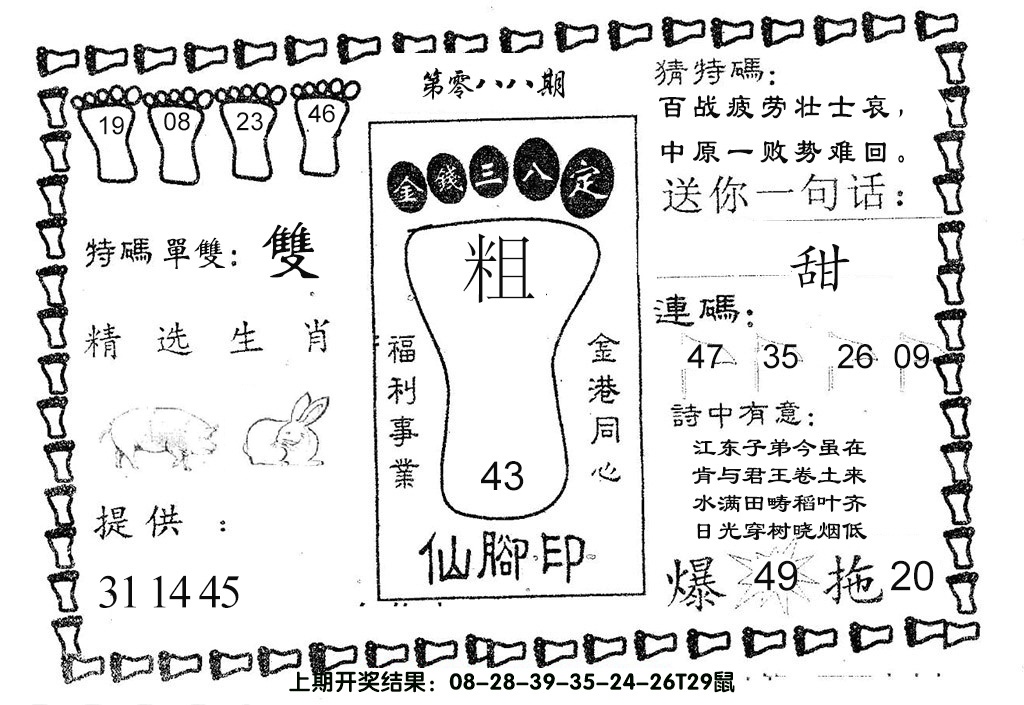 第零八八期
19 08 23 46
特碼單雙：雙
精选生肖
提供：
31 14 45
金錢三八定
粗
福利事業
金港同心
43
仙腳印
猜特碼：
百战疲劳壮士哀，
中原一败势难回。
送你一句话：
甜
連碼：
47 35 26 09
詩中有意：
江东子弟今虽在
肯与君王卷土来
水满田畴稻叶齐
日光穿树晓烟低
爆 49 拖 20
上期开奖结果：08-28-39-35-24-26T29鼠